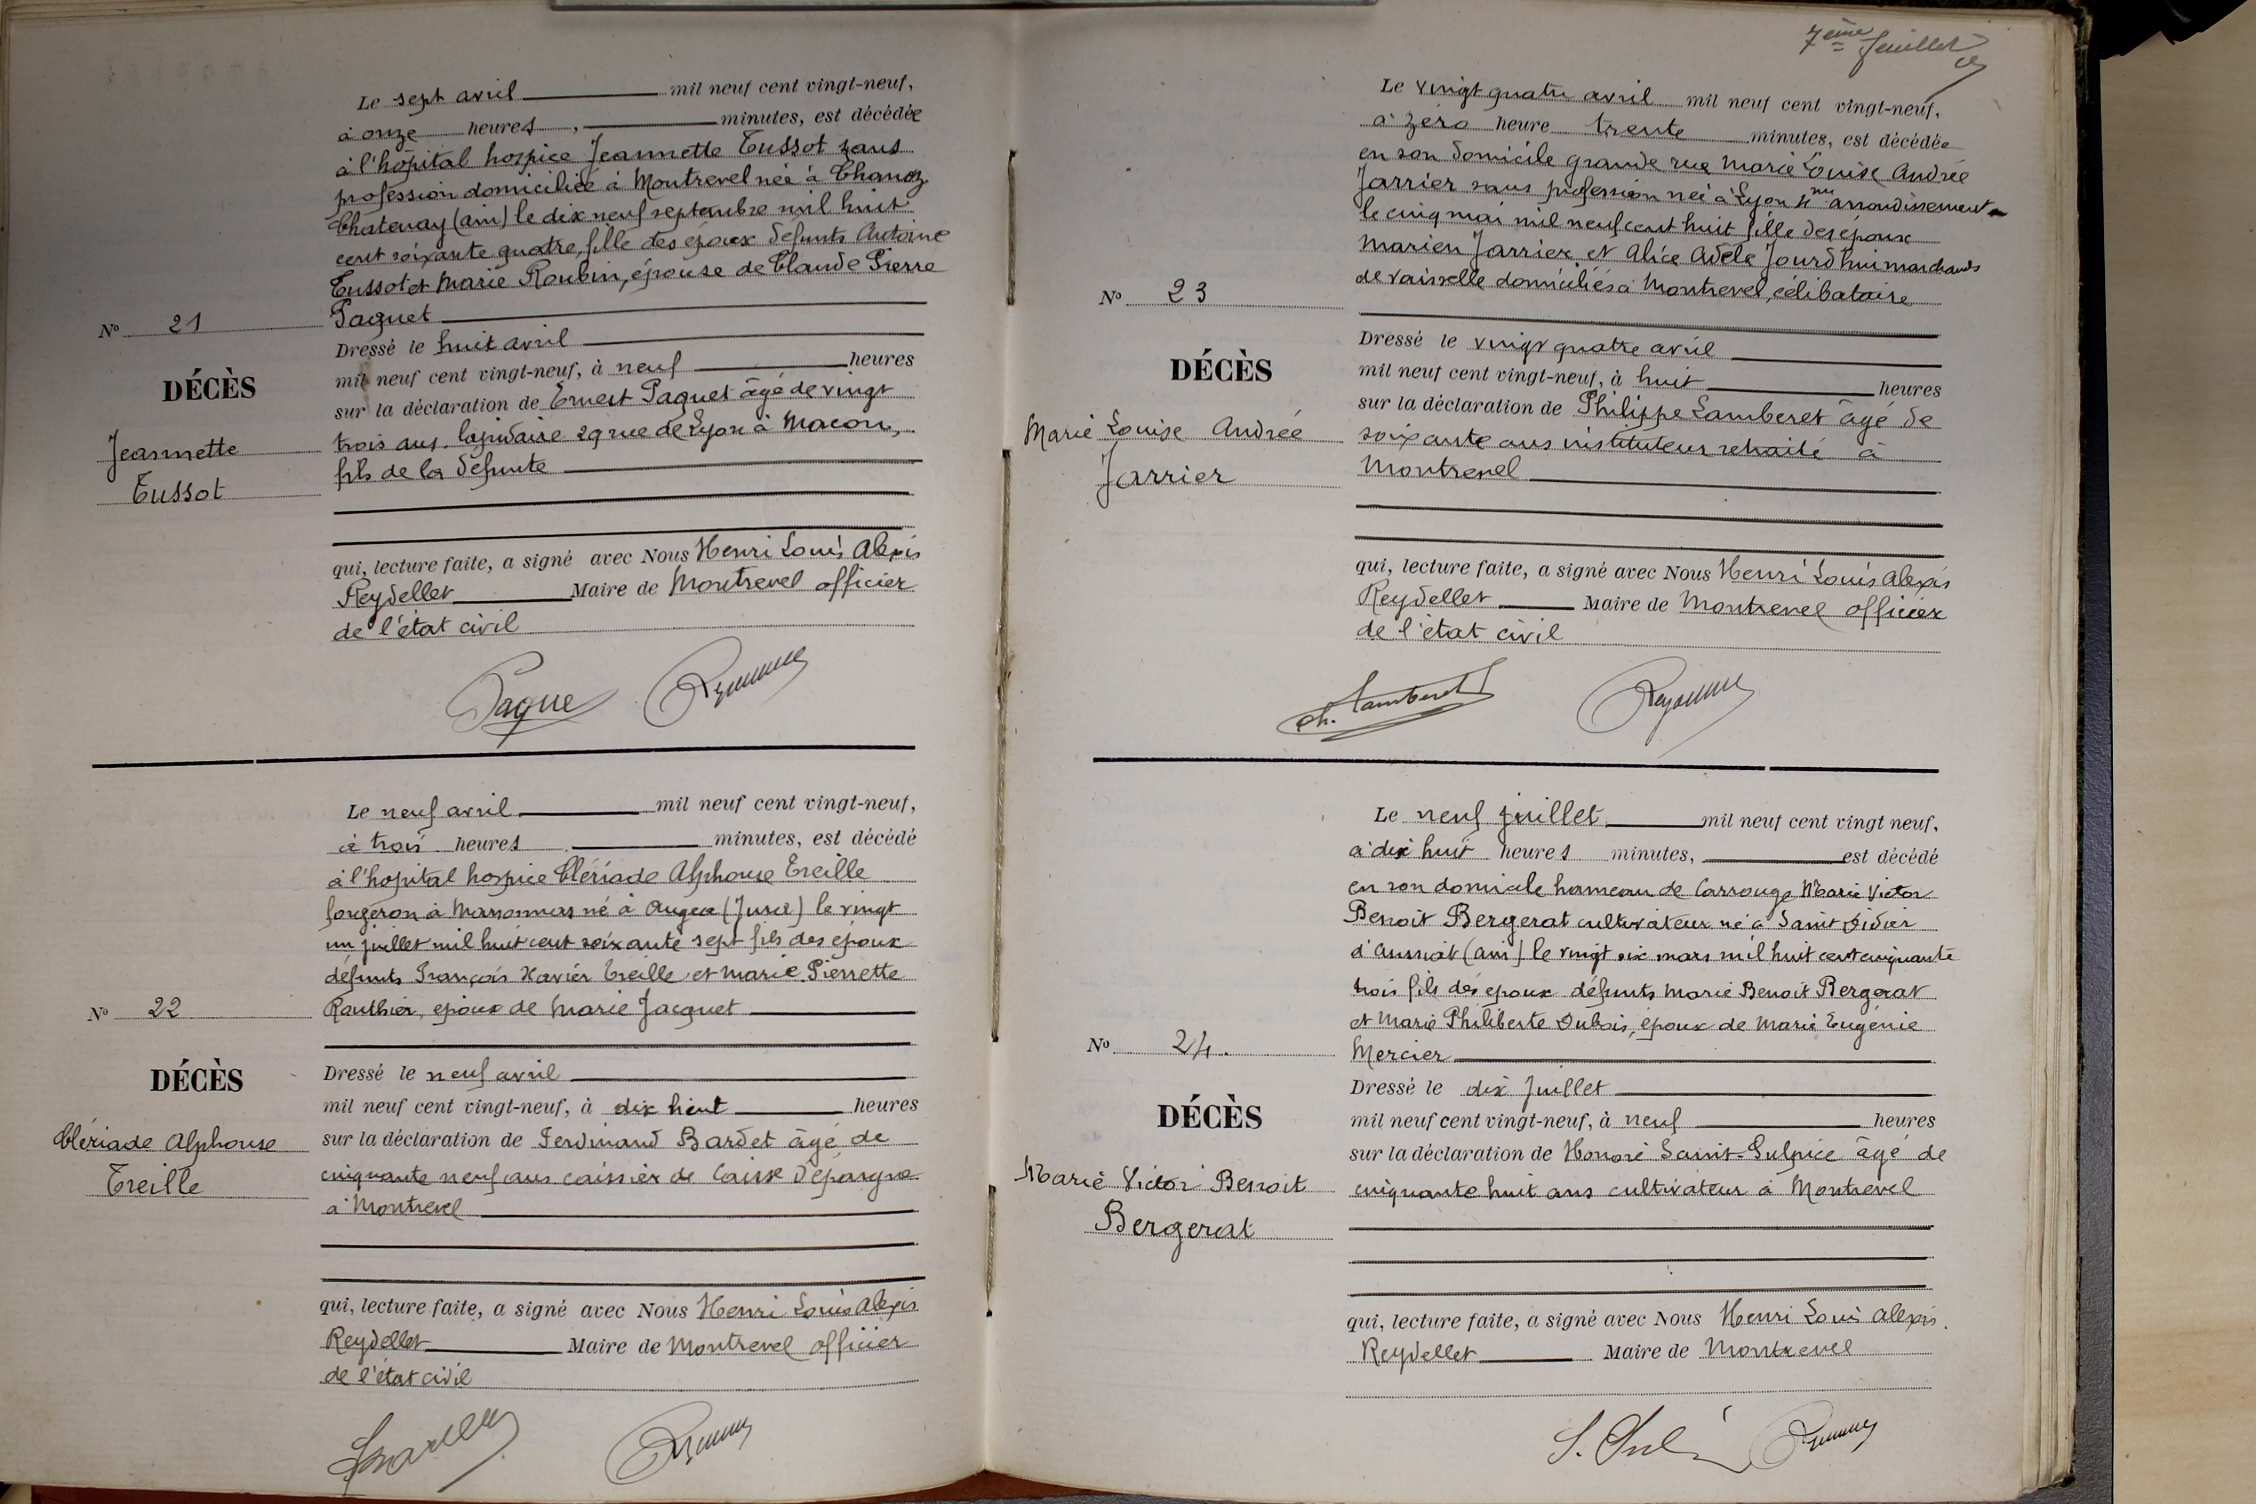 Le sept avril mil neuf cent vingt-neuf,
à onze heures, minutes, est décédée
à l'hôpital hospice Jeannette Tussot sans
profession domiciliée à Montrevel née à Chanoz
Chatenay (ain) le dix neuf septembre mil huit
cent soixante quatre, fille des époux défunts Antoine
Tussot et Marie Roubin, épouse de Claude Pierre
Paquet
N° 21
DÉCÈS
Jeannette
Tussot
Dressé le huit avril
mil neuf cent vingt-neuf, à neuf heures
sur la déclaration de Ernest Paquet âgé de vingt
trois ans, lapidaire 29 rue de Lyon à Macon,
fils de la défunte
qui, lecture faite, a signé avec Nous Henri Louis Alexis
Reydellet Maire de Montrevel officier
de l'état civil
Paque
Le neuf avril mil neuf cent vingt-neuf,
à trois heures minutes, est décédé
à l'hopital hospice Clériade Alphonse Treille
forgeron à Marsonnas né à Augea (Jura) le vingt
un juillet mil huit cent soixante sept fils des époux
défunts François Xavier Treille et Marie Pierrette
Rauthier, époux de Marie Jacquet
N° 22
DÉCÈS
Clériade Alphonse
Treille
Dressé le neuf avril
mil neuf cent vingt-neuf, à dix huit heures
sur la déclaration de Ferdinand Bardet âgé de
cinquante neuf ans caissier de Caisse d'épargne
à Montrevel
qui, lecture faite, a signé avec Nous Henri Louis Alexis
Reydellet Maire de Montrevel officier
de l'état civil
7ème feuillet
Le vingt quatre avril mil neuf cent vingt-neuf,
à zéro heure trente minutes, est décédée
en son domicile grande rue Marie Louise Andrée
Jarrier sans profession née à Lyon 4me arrondissement
le cinq mai mil neuf cent huit fille des époux
Marien Jarrier et Alice Adèle Jourd'hui marchands
de vaisselle domiciliés à Montrevel, célibataire
N° 23
DÉCÈS
Marie Louise Andrée
Jarrier
Dressé le vingt quatre avril
mil neuf cent vingt-neuf, à huit heures
sur la déclaration de Philippe Lamberet âgé de
soixante ans instituteur retraité à
Montrevel
qui, lecture faite, a signé avec Nous Henri Louis Alexis
Reydellet Maire de Montrevel officier
de l'état civil
Ph. Lamberet
Le neuf juillet mil neuf cent vingt neuf,
à dix huit heures minutes, est décédé
en son domicile hameau de Carrouge Marie Victor
Benoit Bergerat cultivateur né à Saint Didier
d'Aussiat (ain) le vingt six mars mil huit cent cinquante
trois fils des époux défunts Marie Benoit Bergerat
et Marie Philiberte Dubois, époux de Marie Eugénie
Mercier
N° 24.
DÉCÈS
Marie Victor Benoit
Bergerat
Dressé le dix Juillet
mil neuf cent vingt-neuf, à neuf heures
sur la déclaration de Honoré Saint-Sulpice âgé de
cinquante huit ans cultivateur à Montrevel
qui, lecture faite, a signé avec Nous Henri Louis Alexis.
Reydellet Maire de Montrevel